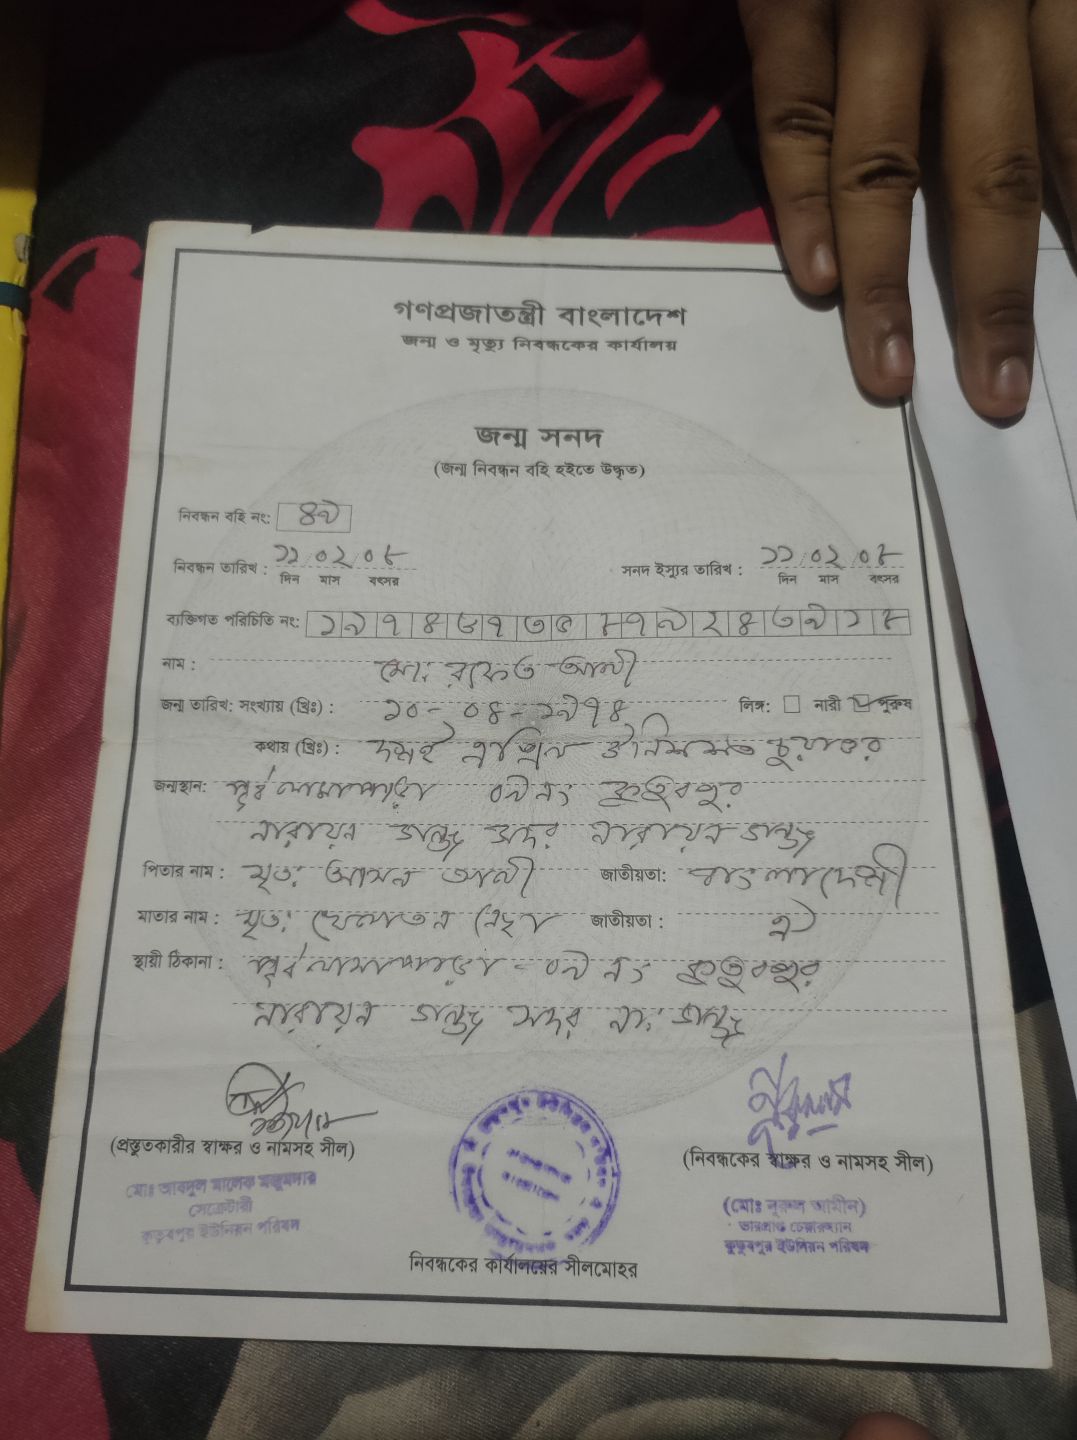 গণপ্রজাতন্ত্রী বাংলাদেশ
জন্ম ও মৃত্যু নিবন্ধকের কার্যালয়
জন্ম সনদ
(জন্ম নিবন্ধন বহি হইতে উদ্ধৃত)
নিবন্ধন বহি নং: ৪৯
নিবন্ধন তারিখ : ১১ ০২ ০৮ সনদ ইস্যুর তারিখ : ১১ ০২ ০৮
দিন মাস বৎসর দিন মাস বৎসর
ব্যক্তিগত পরিচিতি নং: ১৯৭৪৬৭৩৫৮৭৯২৪৩৯১৮
নাম : মো: আলী
জন্ম তারিখ: সংখ্যায় (খ্রিঃ) : ১০-০৪-১৯৭৪ লিঙ্গ: নারী পুরুষ
কথায় (খ্রিঃ) : দশই এপ্রিল উনিশশত চুয়াত্তর
জন্মস্থান: পূর্ব লামাপাড়া ০৯ নং কুতুবপুর
নারায়ন গঞ্জ সদর নারায়ন গঞ্জ
পিতার নাম : মৃত: আলী জাতীয়তা: বাংলাদেশী
মাতার নাম : মৃত: নেছা জাতীয়তা : ঐ
স্থায়ী ঠিকানা : পূর্ব লামাপাড়া - ০৯ নং কুতুবপুর
নারায়ন গঞ্জ সদর না: গঞ্জ
(প্রস্তুতকারীর স্বাক্ষর ও নামসহ সীল)
মোঃ আবদুল মালেক মজুমদার
সেক্রেটারী
কুতুবপুর ইউনিয়ন পরিষদ
(নিবন্ধকের স্বাক্ষর ও নামসহ সীল)
(মোঃ নূরুল আমীন)
ভারপ্রাপ্ত চেয়ারম্যান
কুতুবপুর ইউনিয়ন পরিষদ
নিবন্ধকের কার্যালয়ের সীলমোহর